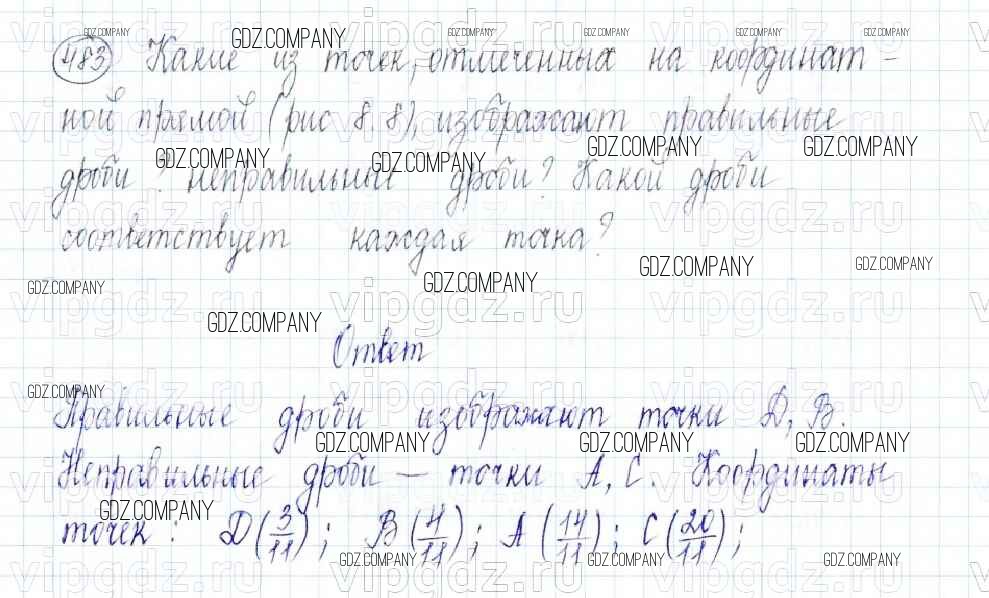 483 Какие из точек, отмеченных на координат-
ной прямой (рис 8.8), изображают правильные
дроби? неправильные дроби? Какой дроби
соответствует каждая точка?
Ответ
Правильные дроби изображают точки D, B.
Неправильные дроби — точки A, C. Координаты
точек: D(3/11); B(4/11); A(14/11); C(20/11);